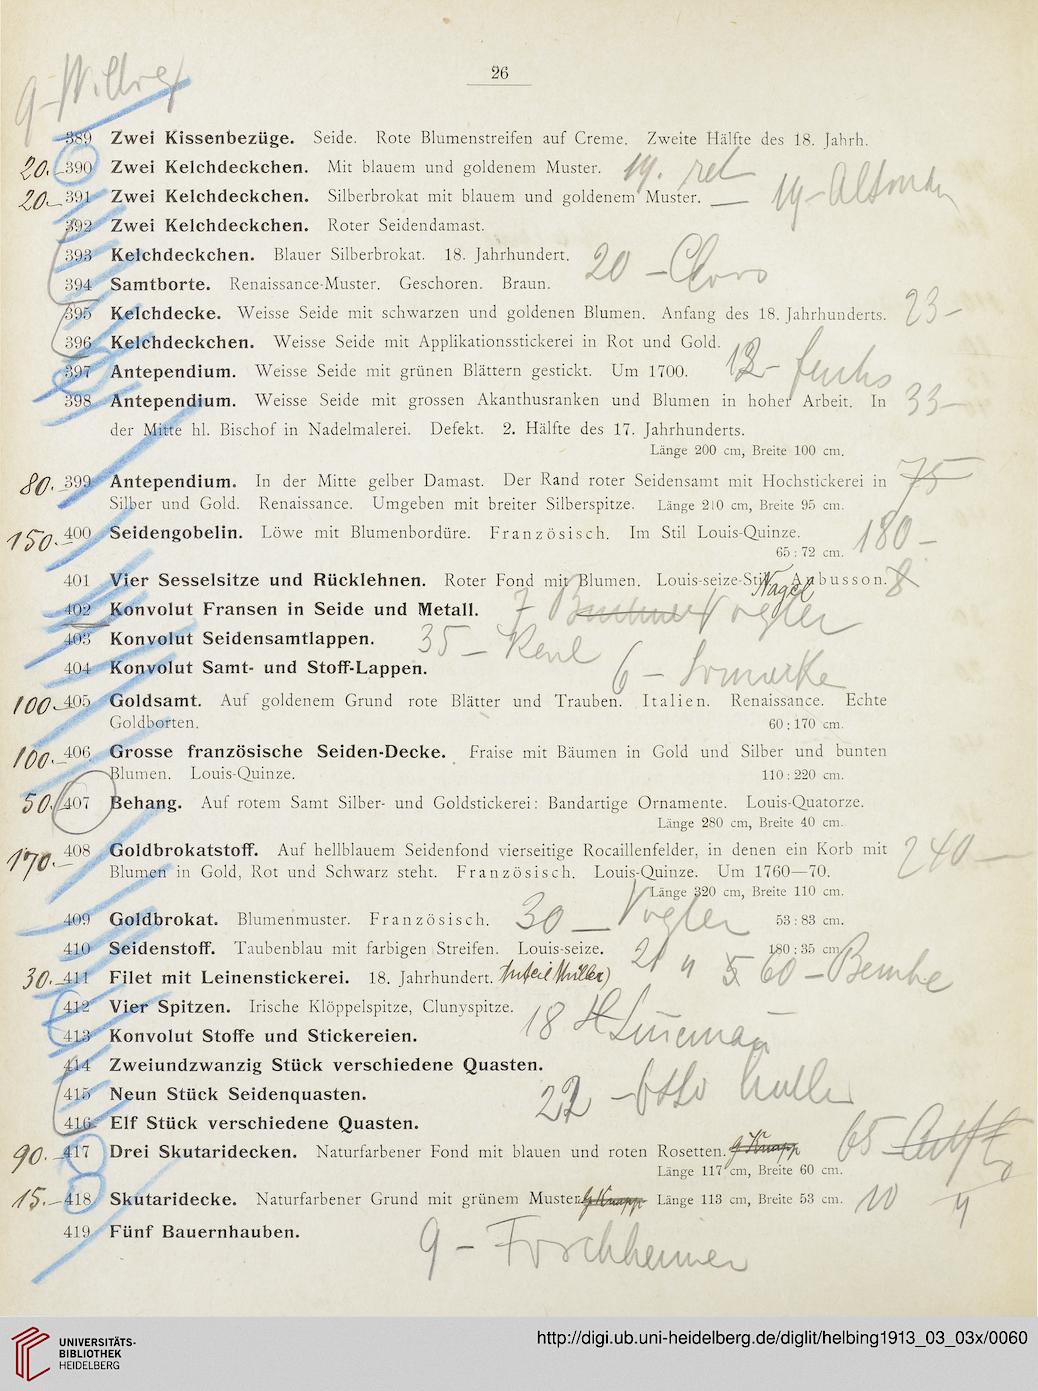 26
389 Zwei Kissenbezüge. Seide. Rote Blumenstreifen auf Creme. Zweite Hälfte des 18. Jahrh.
20. 390 Zwei Kelchdeckchen. Mit blauem und goldenem Muster. 19. ret
20.— 391 Zwei Kelchdeckchen. Silberbrokat mit blauem und goldenem Muster. — 19 –
392 Zwei Kelchdeckchen. Roter Seidendamast.
393 Kelchdeckchen. Blauer Silberbrokat. 18. Jahrhundert. 20 –
394 Samtborte. Renaissance-Muster. Geschoren. Braun.
395 Kelchdecke. Weisse Seide mit schwarzen und goldenen Blumen. Anfang des 18. Jahrhunderts. 23 –
396 Kelchdeckchen. Weisse Seide mit Applikationsstickerei in Rot und Gold.
397 Antependium. Weisse Seide mit grünen Blättern gestickt. Um 1700. Fuchs
398 Antependium. Weisse Seide mit grossen Akanthusranken und Blumen in hoher Arbeit. In 33 –
der Mitte hl. Bischof in Nadelmalerei. Defekt. 2. Hälfte des 17. Jahrhunderts.
Länge 200 cm, Breite 100 cm.
80. 399 Antependium. In der Mitte gelber Damast. Der Rand roter Seidensamt mit Hochstickerei in 75
Silber und Gold. Renaissance. Umgeben mit breiter Silberspitze. Länge 210 cm, Breite 95 cm.
150.- 400 Seidengobelin. Löwe mit Blumenbordüre. Französisch. Im Stil Louis-Quinze. 180 –
65 : 72 cm.
401 Vier Sesselsitze und Rücklehnen. Roter Fond mit Blumen. Louis-seize-Stil. Aubusson. 8
Nagel
402 Konvolut Fransen in Seide und Metall. 7 Vogler
403 Konvolut Seidensamtlappen. 35 –
404 Konvolut Samt- und Stoff-Lappen. 6 –
100.- 405 Goldsamt. Auf goldenem Grund rote Blätter und Trauben. Italien. Renaissance. Echte
Goldborten. 60 : 170 cm.
100.- 406 Grosse französische Seiden-Decke. Fraise mit Bäumen in Gold und Silber und bunten
Blumen. Louis-Quinze. 110 : 220 cm.
50. 407 Behang. Auf rotem Samt Silber- und Goldstickerei: Bandartige Ornamente. Louis-Quatorze.
Länge 280 cm, Breite 40 cm.
170.- 408 Goldbrokatstoff. Auf hellblauem Seidenfond vierseitige Rocaillenfelder, in denen ein Korb mit 240 –
Blumen in Gold, Rot und Schwarz steht. Französisch. Louis-Quinze. Um 1760—70.
Länge 320 cm, Breite 110 cm.
409 Goldbrokat. Blumenmuster. Französisch. 30 – Vogler 53 : 83 cm.
410 Seidenstoff. Taubenblau mit farbigen Streifen. Louis-seize. 21 180 : 35 cm.
30.- 411 Filet mit Leinenstickerei. 18. Jahrhundert. 60 –
412 Vier Spitzen. Irische Klöppelspitze, Clunyspitze.
413 Konvolut Stoffe und Stickereien. 18
414 Zweiundzwanzig Stück verschiedene Quasten.
415 Neun Stück Seidenquasten. 22 – Otto
416 Elf Stück verschiedene Quasten.
90. 417 Drei Skutaridecken. Naturfarbener Fond mit blauen und roten Rosetten. 65
Länge 117 cm, Breite 60 cm.
15.- 418 Skutaridecke. Naturfarbener Grund mit grünem Muster. Länge 113 cm, Breite 53 cm. 10
419 Fünf Bauernhauben. 9 – Forchheimer
UNIVERSITÄTS-
BIBLIOTHEK
HEIDELBERG
http://digi.ub.uni-heidelberg.de/diglit/helbing1913_03_03x/0060